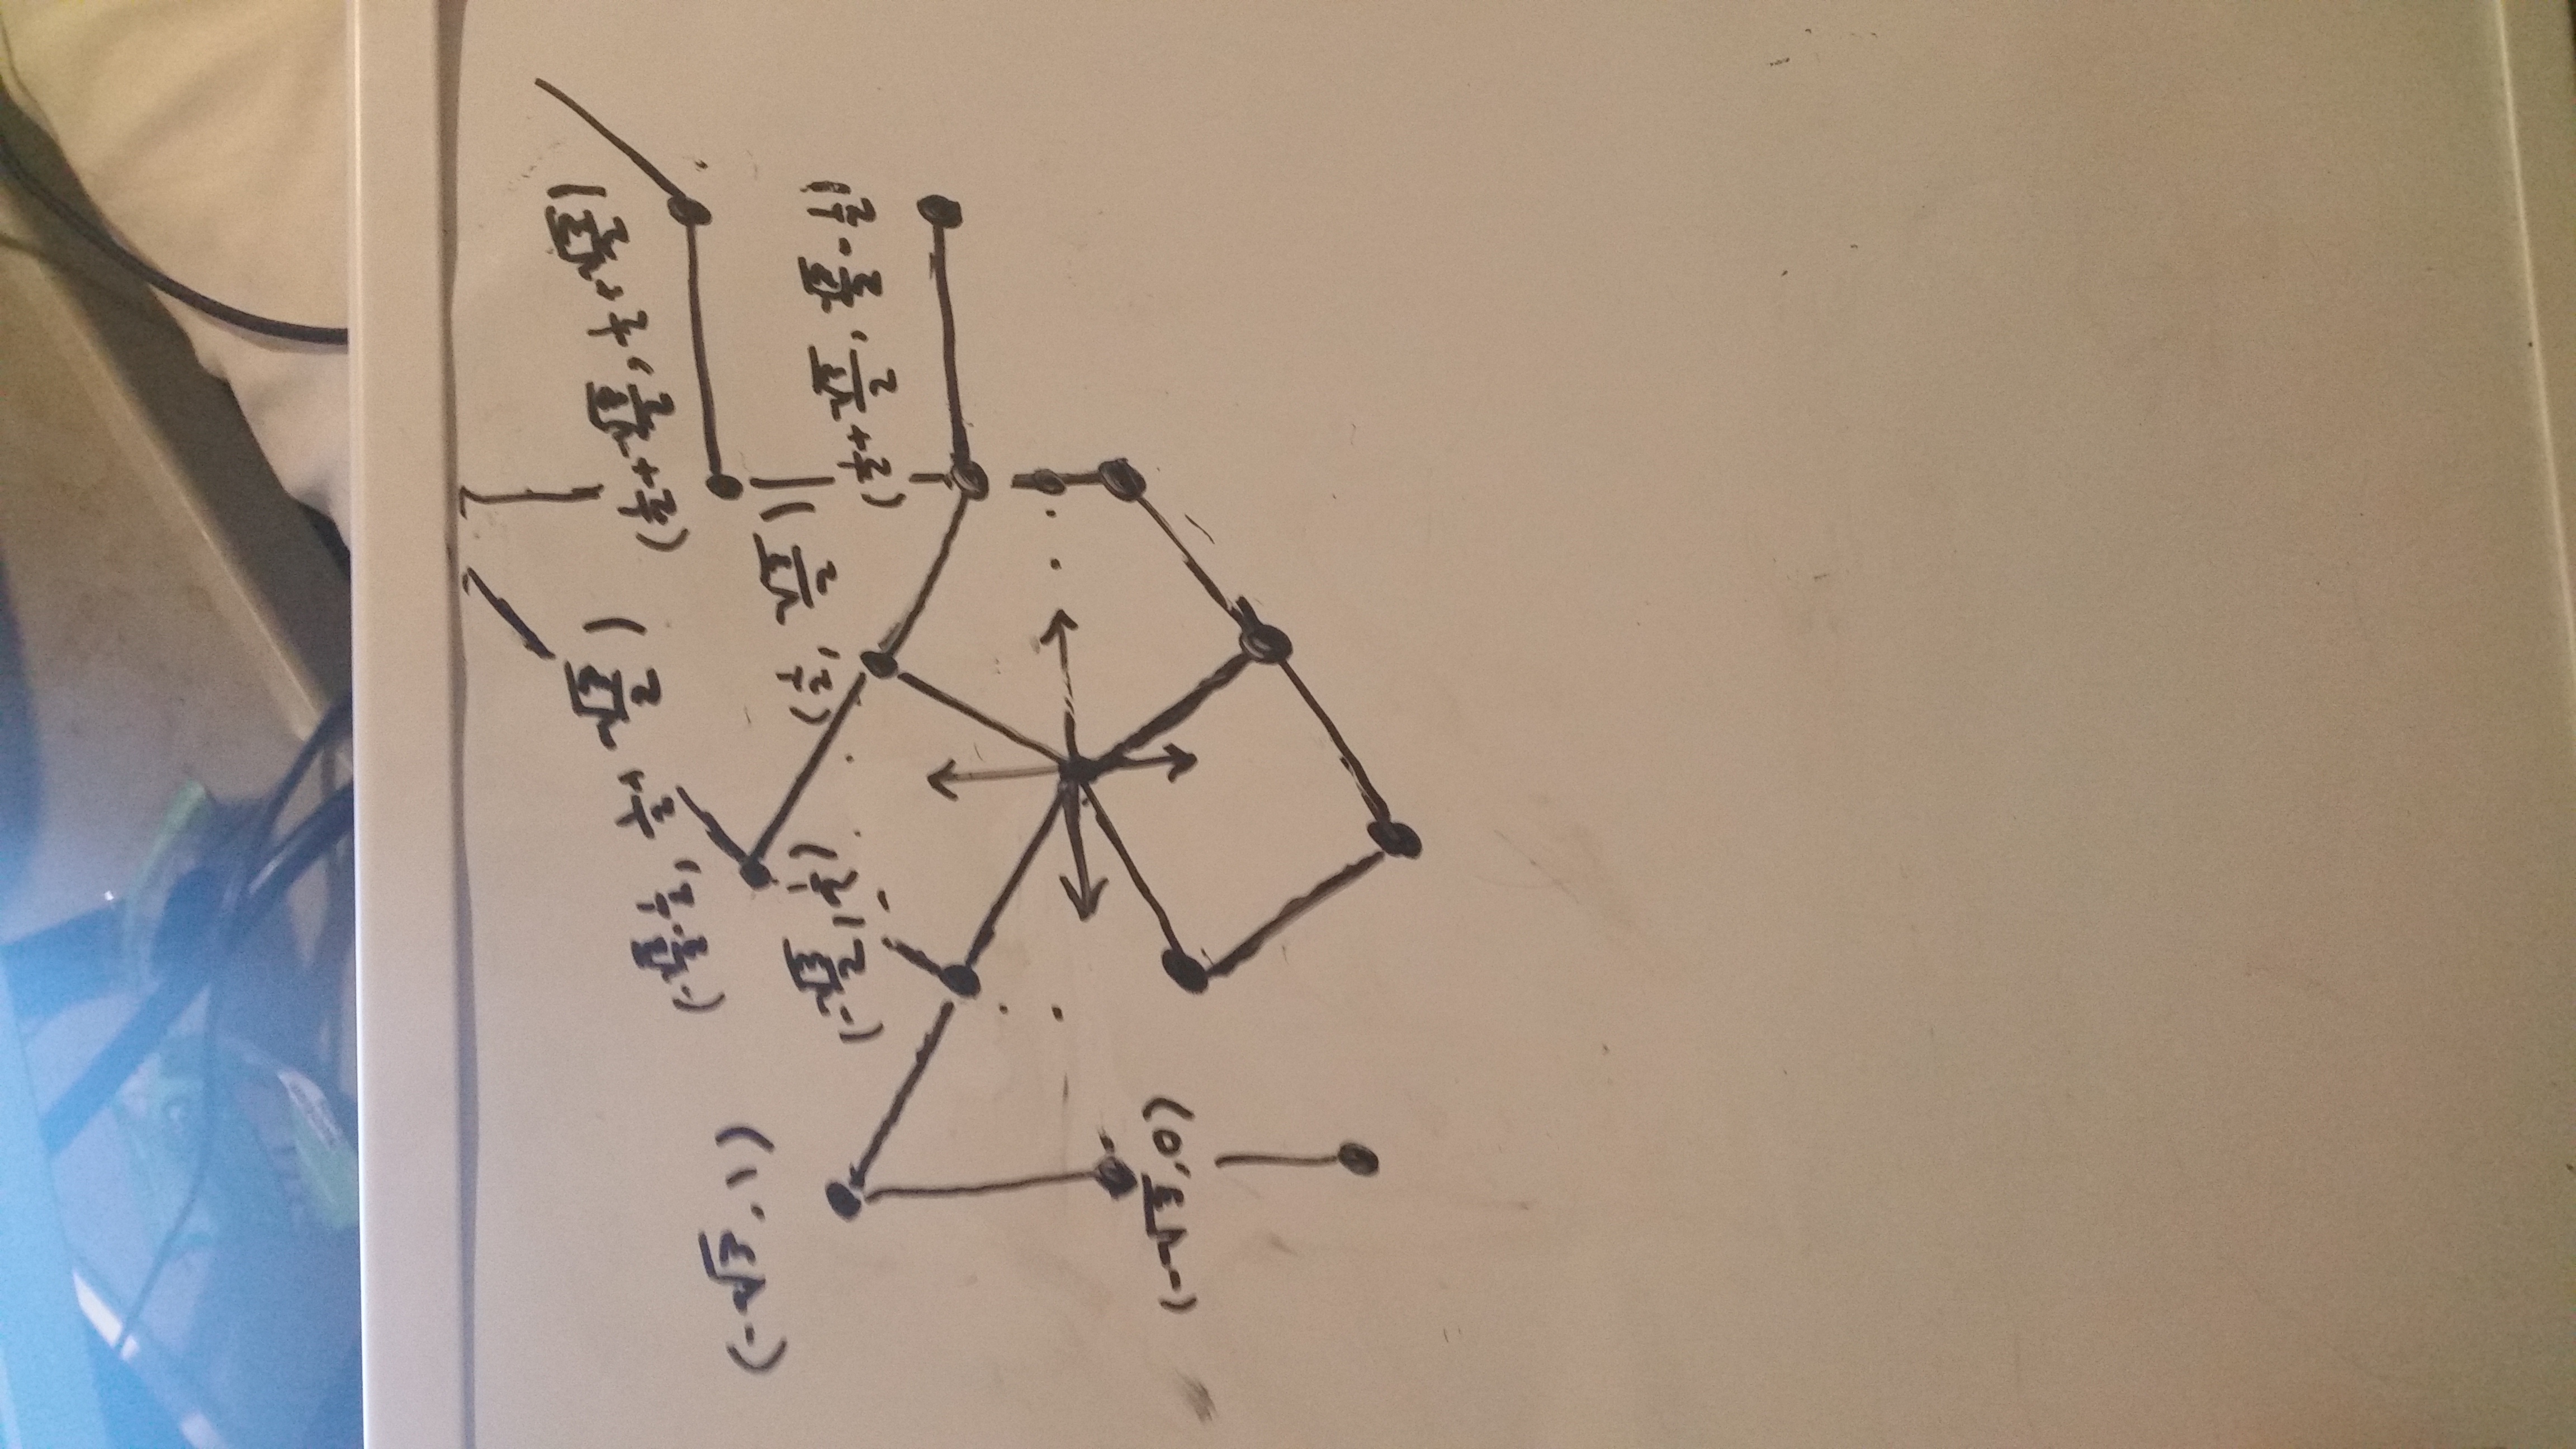 (-√3/2-1/2, 1/2+√3/2)
(1/2+√3/2, 1/2+√3/2)
(-√3, 1)
(-√3/2, 1/2)
(1/2, √3/2)
(1/2+√3/2, √3/2-1/2)
(-√3, 0)